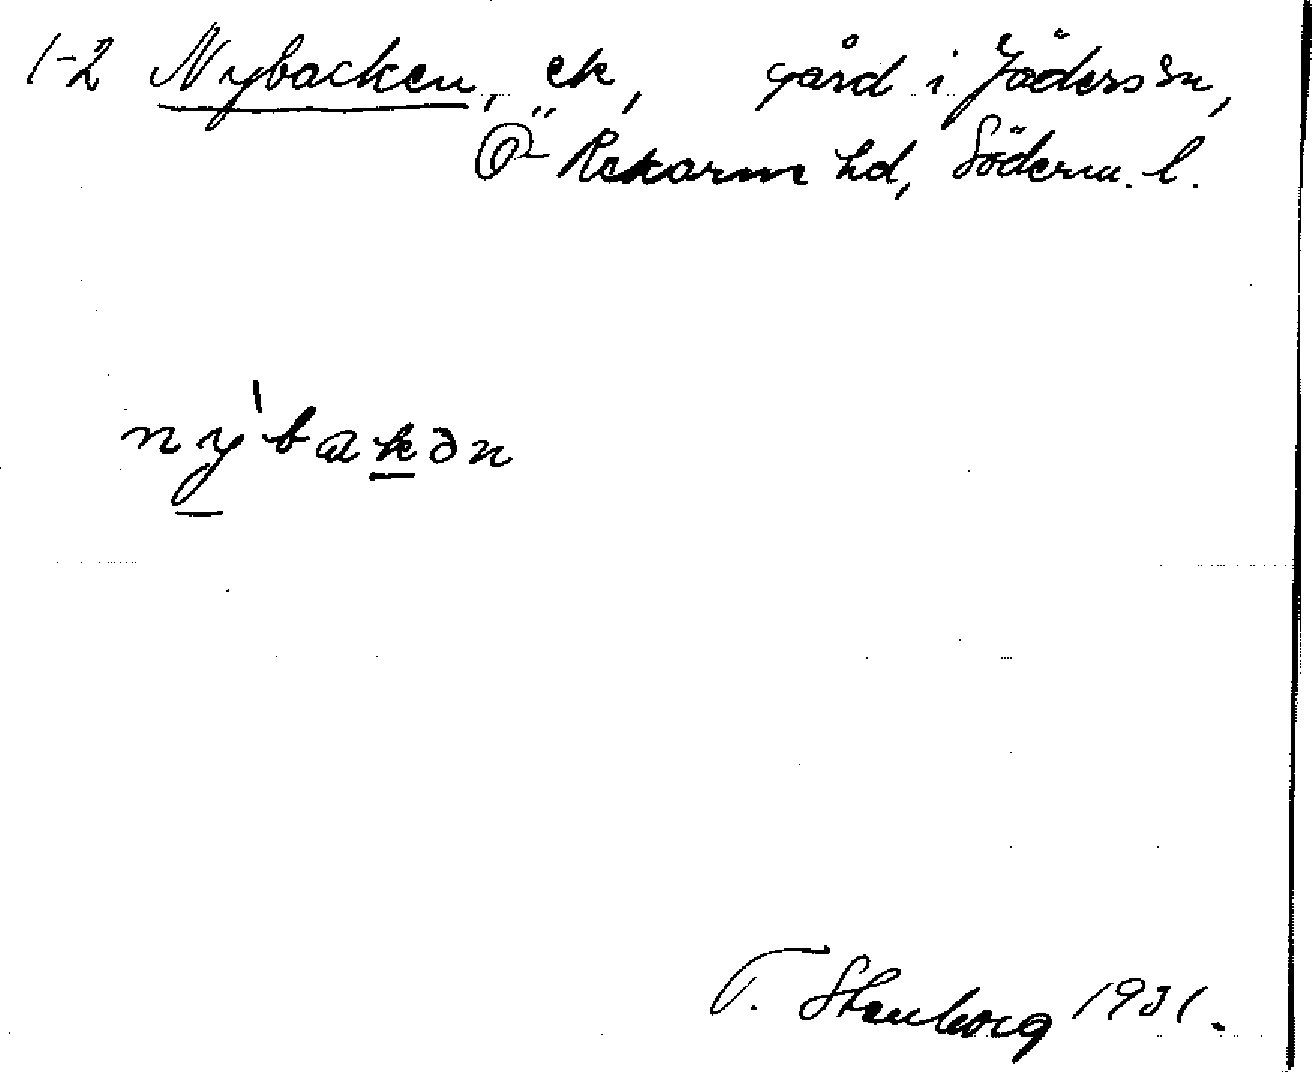 1-2 Nybacken, ek, gård i Jäders sn,
Ö Rekarne hd, Söderm. l.
ny̠ˈbak̠ən
T. Stenborg 1931.